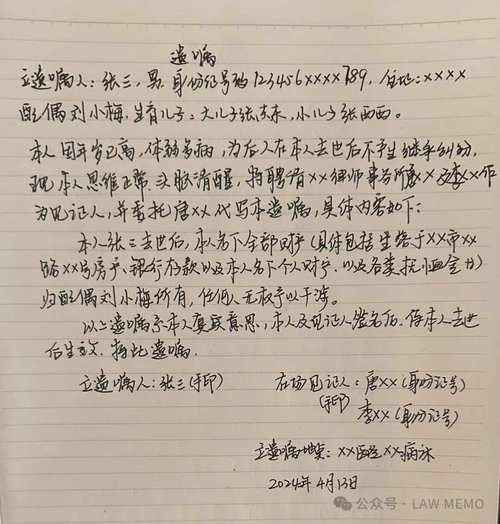 遗嘱
立遗嘱人：张三，男，身份证号码123456xxxx789，住址：xxxx
配偶刘小梅，生育儿子：大儿子张东东，小儿子张西西。
本人因年岁已高，体弱多病，为后人在本人去世后不产生继承纠纷，
现本人思维正常，头脑清醒，特聘请xx律师事务所唐xx及李xx作
为见证人，并委托唐xx代写本遗嘱，具体内容如下：
本人张三去世后，本人名下全部财产（具体包括坐落于xx市xx
路xx号房产、银行存款以及本人名下个人财产，以及各类抚恤金等）
归配偶刘小梅所有，任何人无权予以干涉。
以上遗嘱系本人真实意思，本人及见证人签名后，待本人去世
后生效。特此遗嘱。
立遗嘱人：张三（手印） 在场见证人：唐xx（身份证号）
（手印） 李xx（身份证号）
立遗嘱地点：xx医院xx病床
2024年4月13日
公众号·LAW MEMO